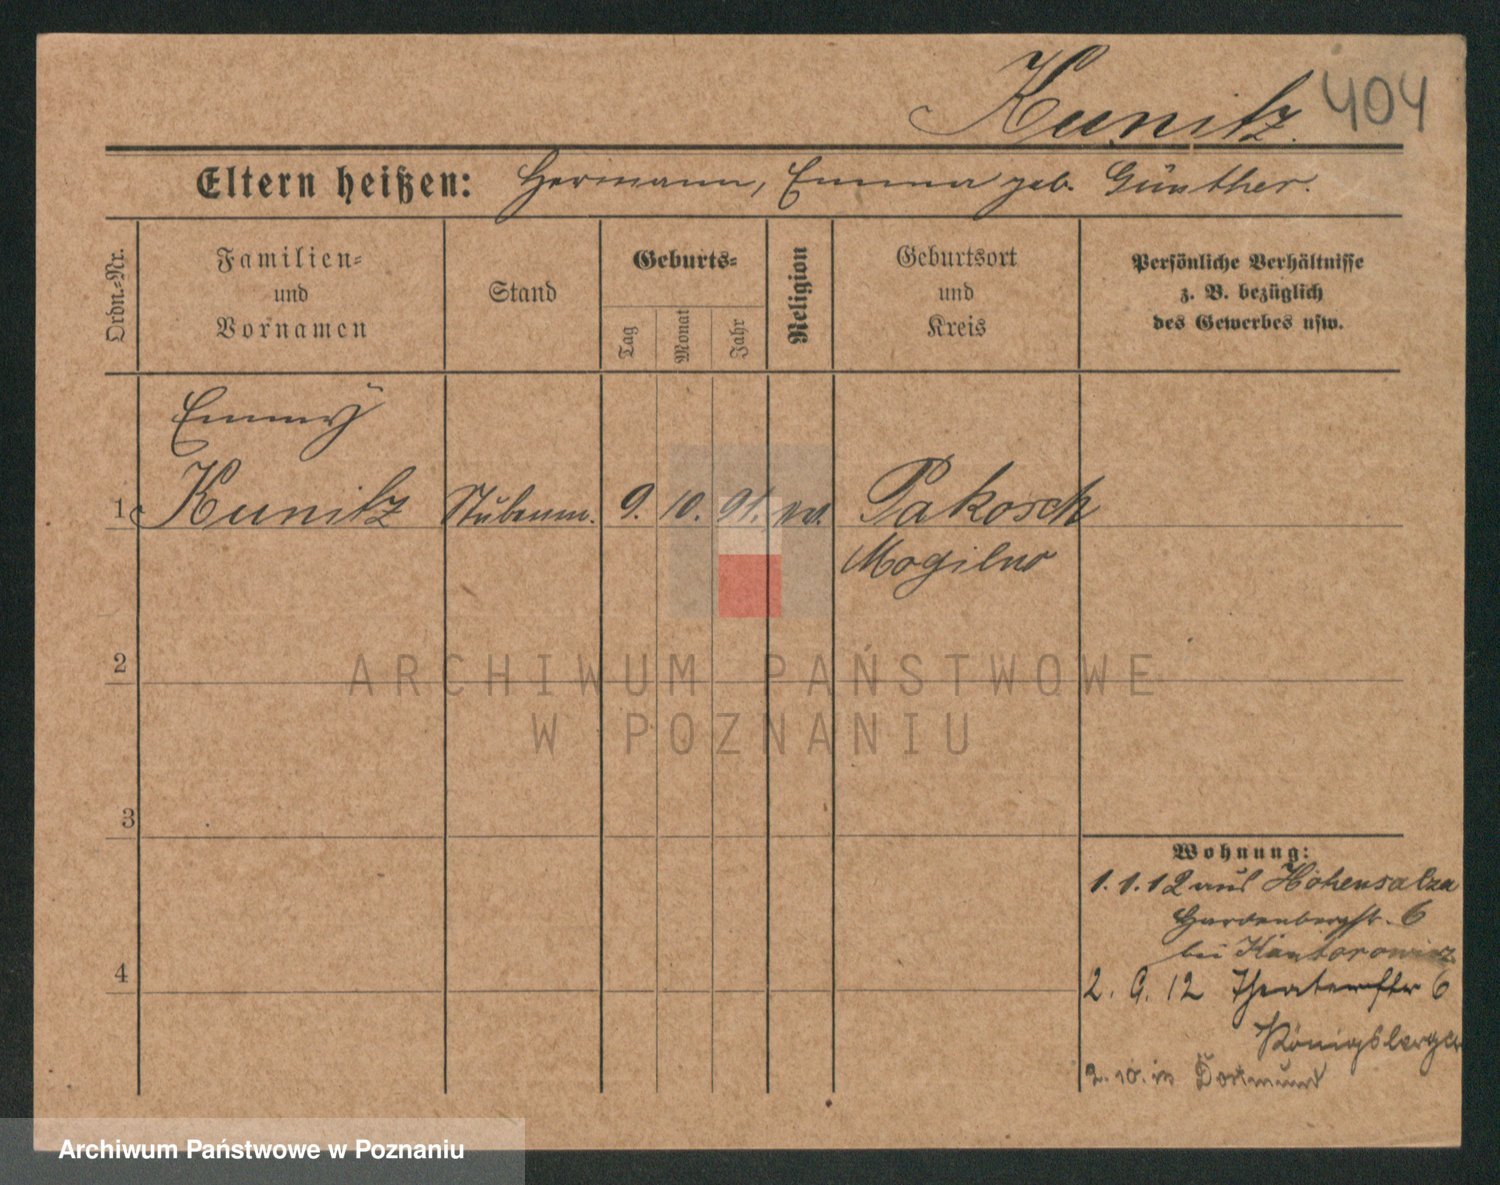 Kunitz. 404
Eltern heißen: Hermann, Emma geb. Günther.
Ordn.-Nr.
Familien-
und
Vornamen
Stand
Geburts-
Tag
Monat
Jahr
Religion
Geburtsort
und
Kreis
Persönliche Verhältnisse
z. B. bezüglich
des Gewerbes usw.
Emmy
1 Kunitz Stubenm. 9. 10. 91. ev. Pakosch
Mogilno
2
3
4
Wohnung:
1.1.12 aus Hohensalza
Hardenbergstr. 6
bei Kantorowicz
2. 9. 12 Theaterstr 6
Königsberger
2.10. in Dortmund
ARCHIWUM PAŃSTWOWE
W POZNANIU
Archiwum Państwowe w Poznaniu